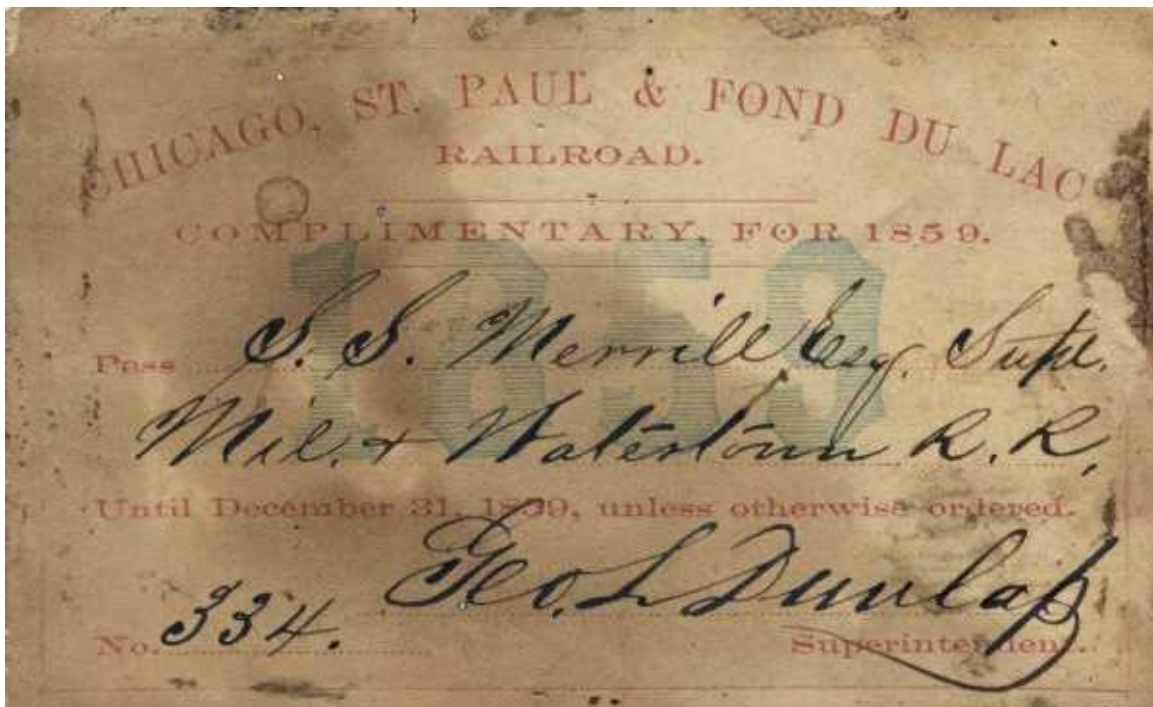 CHICAGO, ST. PAUL & FOND DU LAC
RAILROAD.
COMPLIMENTARY, FOR 1859.
1859
Pass S. S. Merrill Esq. Supt.
Mil. & Watertown R. R.
Until December 31, 1859, unless otherwise ordered.
Geo. L Dunlap
No. 334. Superintendent.